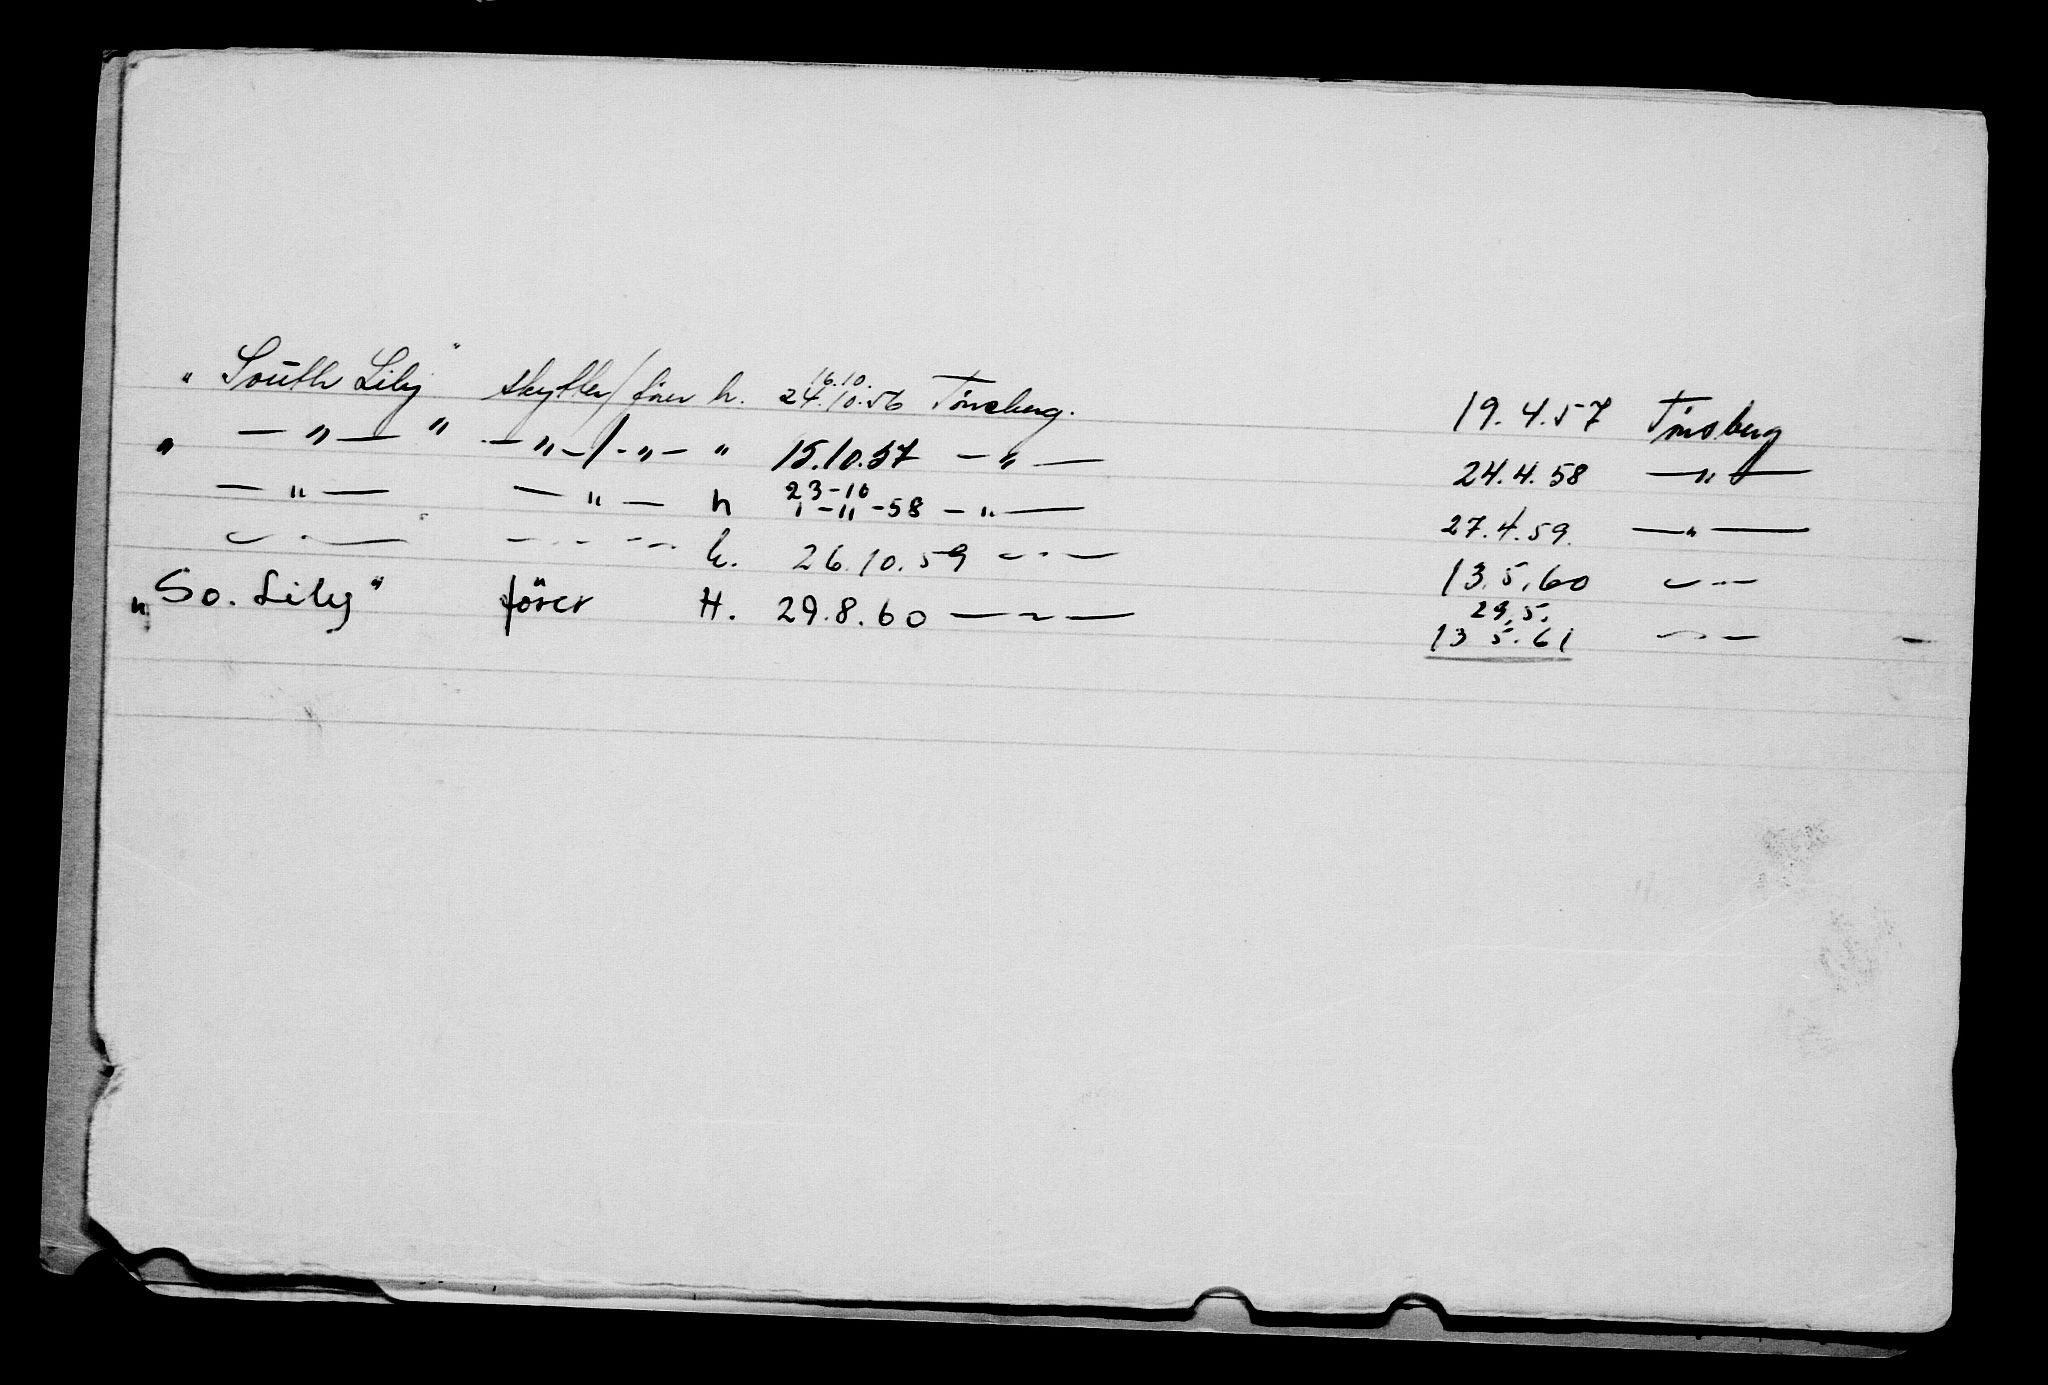 "South Lily" skytter/fører h. 16.10. 24.10.56 Tönsberg. 19.4.57 Tönsberg
" — " — " — " — / - " — " 15.10.57 — " — 24.4.58 — " —
— " — — " — h 23-10 1-11-58 — " — 27.4.59. — " —
— " — — " — h. 26.10.59 — " — 13.5.60 — " —
"So. Lily" förer H. 29.8.60 — " — 29.5. 13 5.61 — " — -